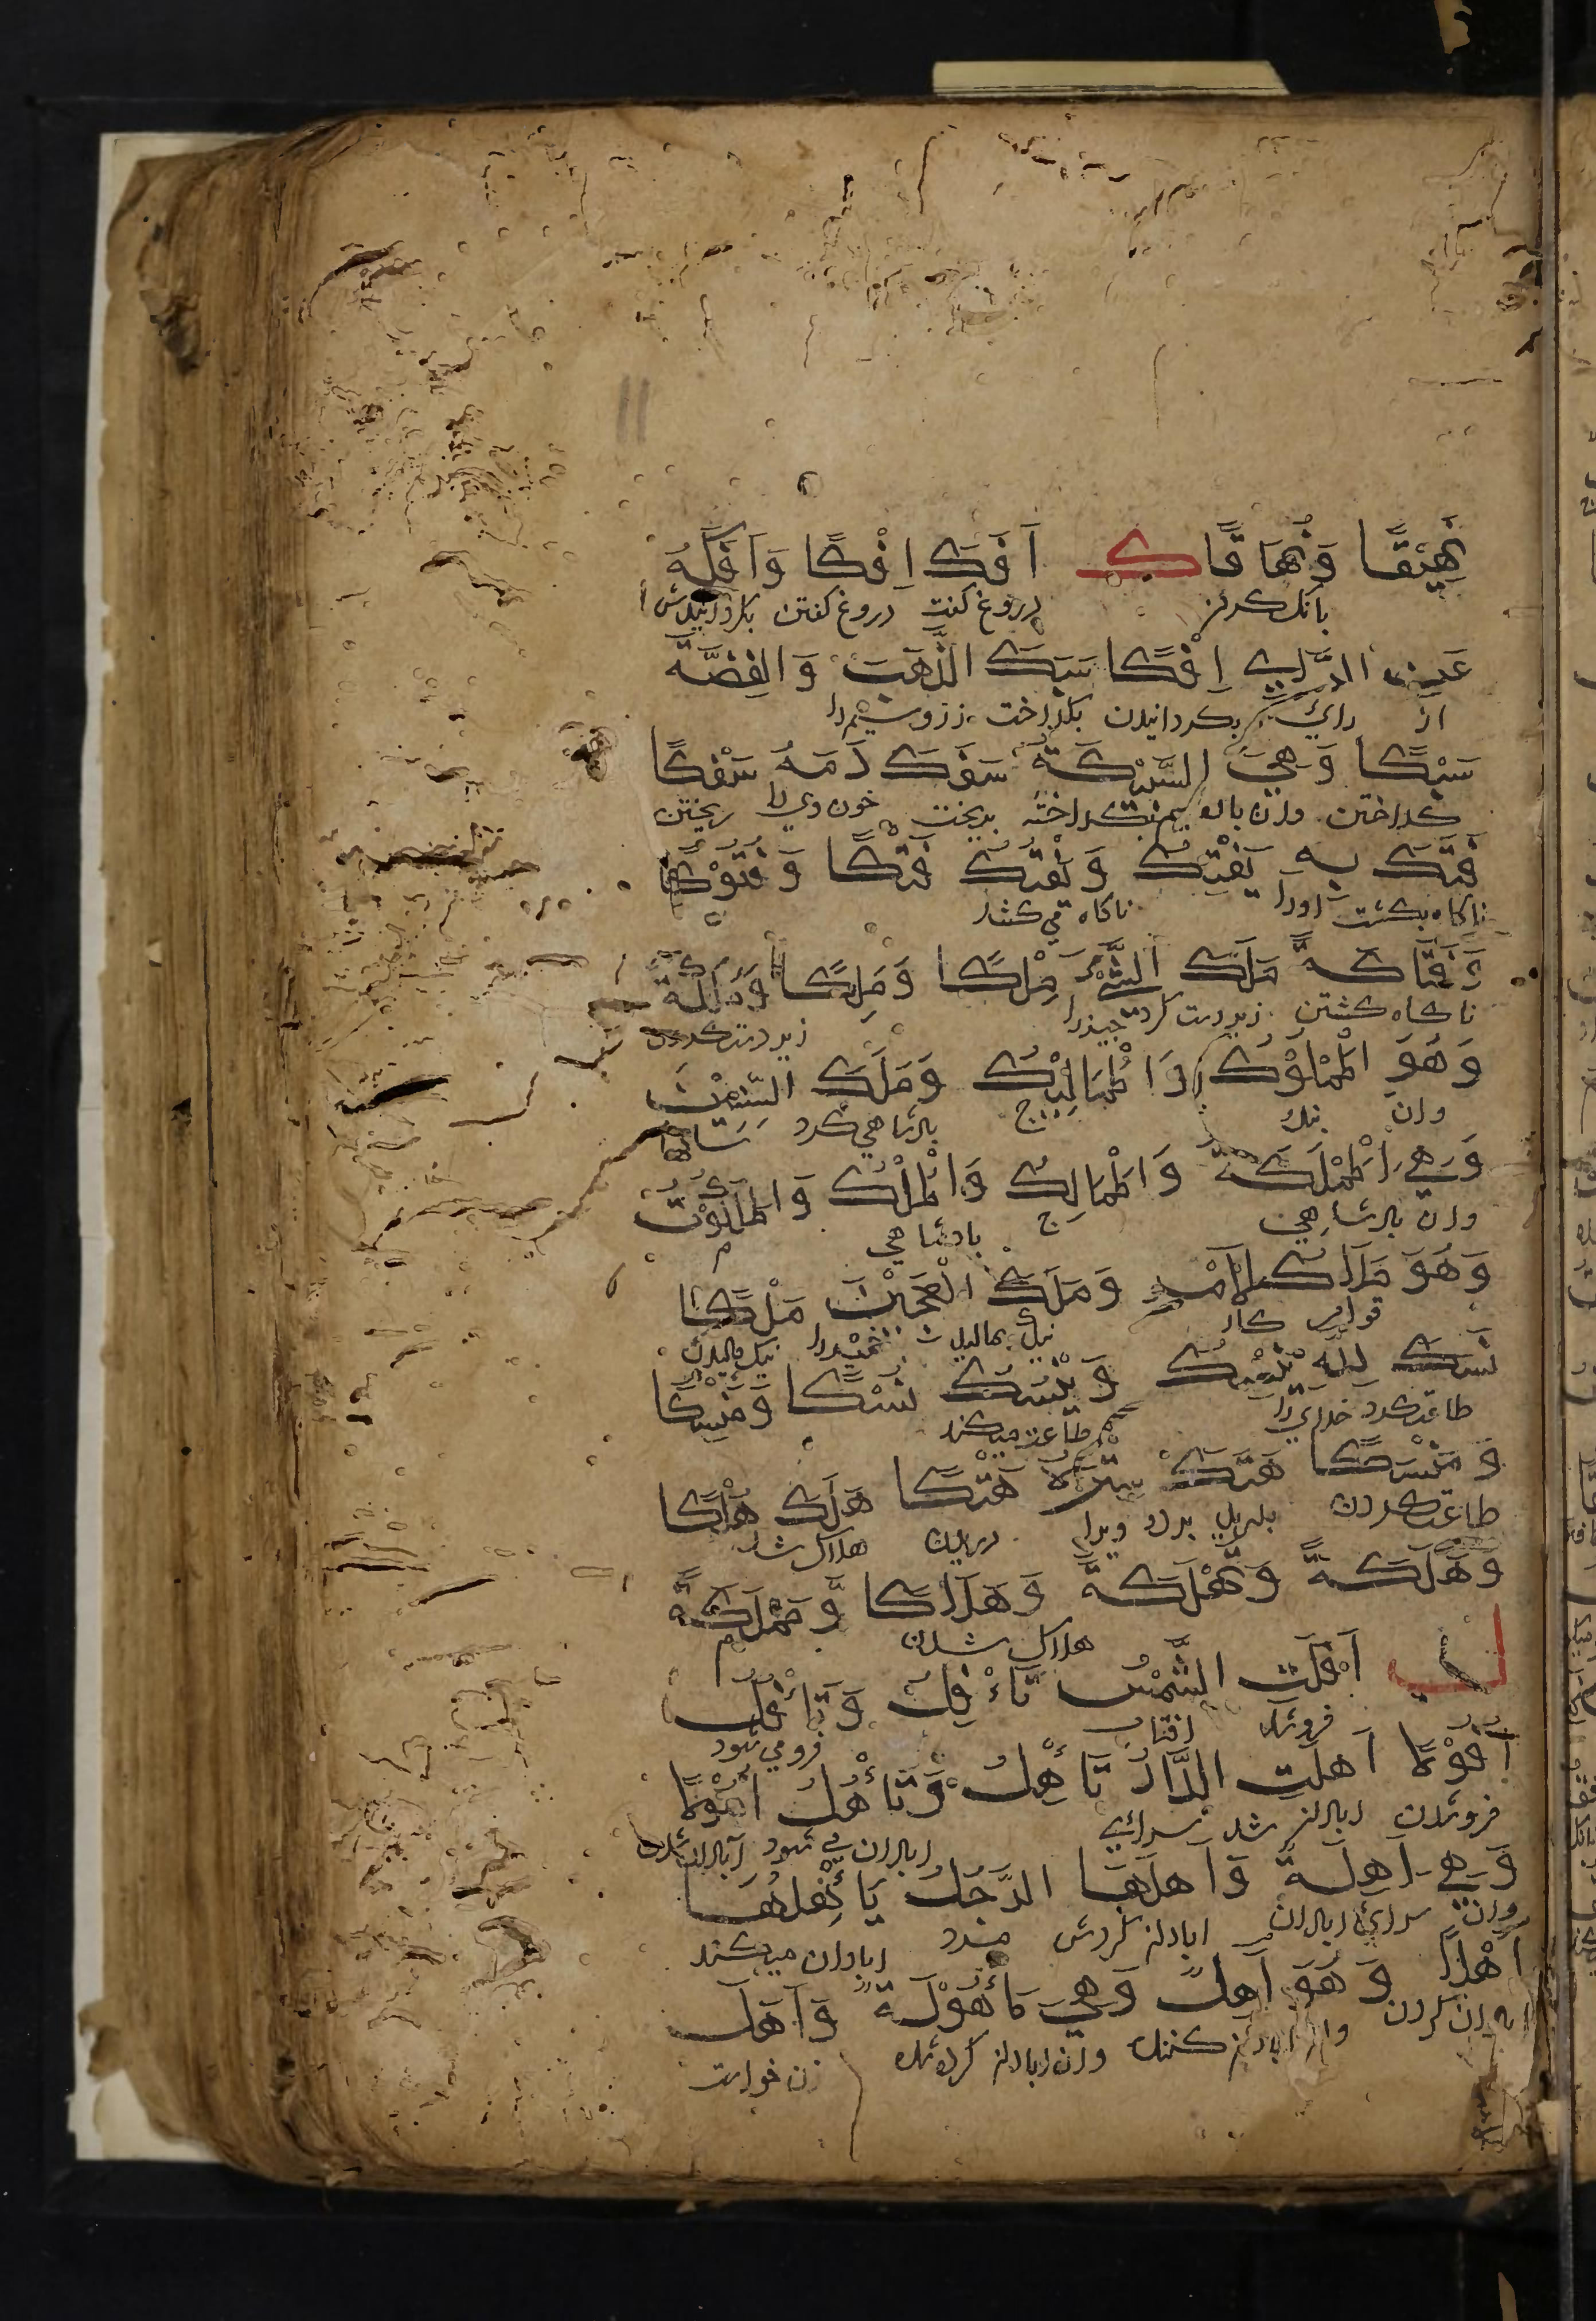 نَهِيْقًا وَنُهَاقًا ك اَفَكَ اِفْكًا وَاَفَكَهُ
بانك كردن دروغ كفت دروغ كفتن بكردانيدش
عَنِ الرَّايِ اِفْكًا سَبَكَ الذَّهَبَ وَالفِضَّةَ
از راي بكردانيدن بكداخت زر وسيم را
سَبْكًا وَهِيَ السَّبِيْكَةُ سَفَكَ دَمَهُ سَفْكًا
كداختن وان سيم كداخته بريخت خون وي را ريختن
فَتَكَ بِهِ يَفْتِكُ وَيَفْتُكُ فَتْكًا وَفُتُوْكًا
ناكاه بكشت اورا ناكاه مي كشد
وَفَتَاكَةً مَلَكَ الشَّيْءَ مِلْكًا وَمَلِكًا وَمَلَكَةً
ناكاه كشتن زير دست كرد چيزرا زير دست كردن
وَهُوَ الْمَمْلُوْكُ وَالْمَمَالِيْكُ وَمَلَكَ السِّنِيْنَ
وان بنده ج پادشاهي كرد سالها
وَهِيَ الْمَمْلَكَةُ وَالْمَمَالِكُ وَالْمُلْكُ وَالْمَلَكُوْتُ
وان پادشاهي ج پادشاهي م
وَهُوَ مَلَاكُ الاَمْرِ وَمَلَكَ الْعَجِيْنَ مَلْكًا
قوام كار نيك بماليد خمير را نيك ماليدن
نَسَكَ لِلّهِ يَنْسِكُ وَيَنْسُكُ نُسْكًا وَمَنْسِكًا
طاعت كرد خداي را طاعت ميكند
وَمَنْسَكًا هَتَكَ سِتْرَهُ هَتْكًا هَلَكَ هُلْكًا
طاعت كردن بدريد پرده ويرا دريدن هلاك شد
وَهَلَكَةً وَتَهْلُكَةً وَهَلَاكًا وَمَهْلَكَةً
هلاك شدن م
ل اَفَلَتِ الشَّمْسُ تَاْفِلُ وَتَاْفُلُ
فروشد افتاب فرو مي شود
اُفُوْلًا اَهَلَتِ الدَّارُ تَاْهِلُ وَتَاْهُلُ اُهُوْلًا
فروشدن ابادان شد سراي ابادان مي شود ابادان شدن
وَهِيَ اَهِلَةٌ وَاَهَلَهَا الرَّجُلُ يَاْهِلُهَا
وان سراي ابادان ابادان كردش مرد ابادان ميكند
اَهْلًا وَهُوَ اَهِلٌ وَهِيَ مَاْهُوْلَةٌ وَاَهَلَ
ابادان كردن وان ابادان كننده وان ابادان كرده شده زن خواست